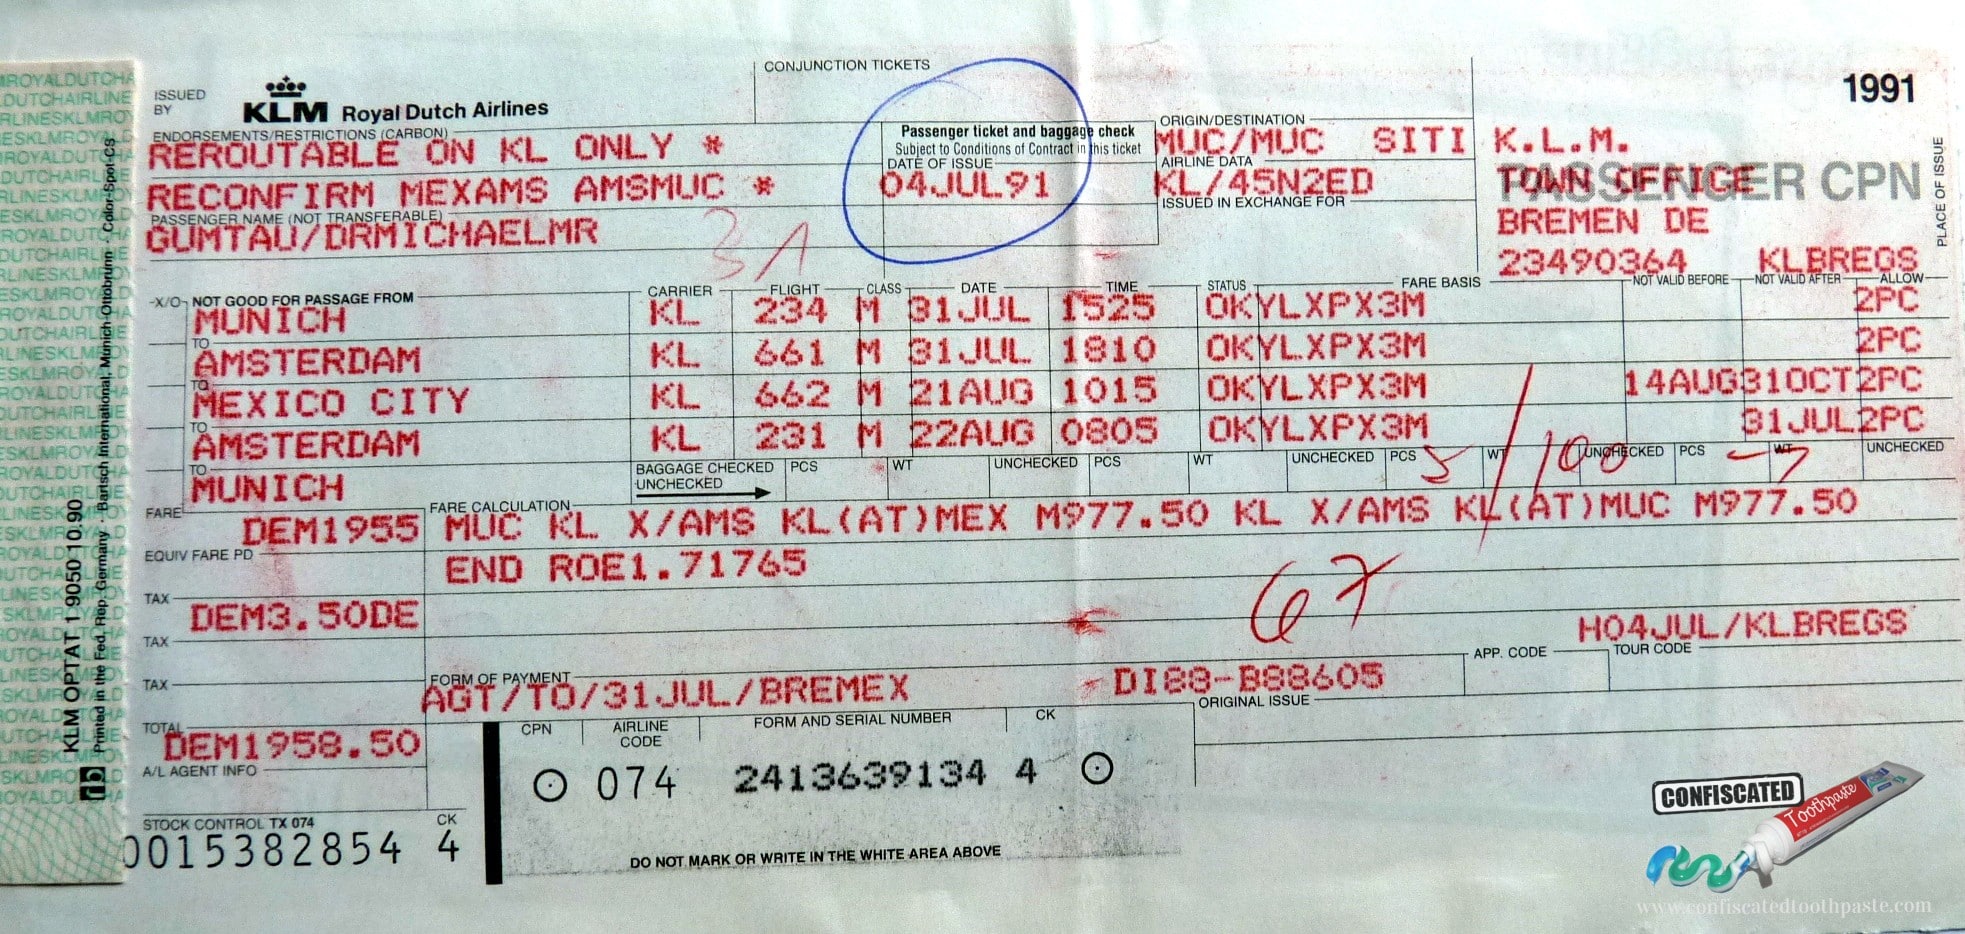 CONJUNCTION TICKETS
1991
ISSUED BY KLM Royal Dutch Airlines
ENDORSEMENTS/RESTRICTIONS (CARBON)
REROUTABLE ON KL ONLY *
RECONFIRM MEXAMS AMSMUC *
Passenger ticket and baggage check
Subject to Conditions of Contract in this ticket
DATE OF ISSUE
04JUL91
ORIGIN/DESTINATION
MUC/MUC SITI
AIRLINE DATA
KL/45N2ED
ISSUED IN EXCHANGE FOR
K.L.M.
PASSENGER CPN
TOWN OFFICE
BREMEN DE
23490364 KLBREGS
PLACE OF ISSUE
PASSENGER NAME (NOT TRANSFERABLE)
GUMTAU/DRMICHAELMR
X/O NOT GOOD FOR PASSAGE FROM CARRIER FLIGHT CLASS DATE TIME STATUS FARE BASIS NOT VALID BEFORE NOT VALID AFTER ALLOW
MUNICH KL 234 M 31JUL 1525 OK YLXPX3M 2PC
TO AMSTERDAM KL 661 M 31JUL 1810 OK YLXPX3M 2PC
TO MEXICO CITY KL 662 M 21AUG 1015 OK YLXPX3M 14AUG 31OCT 2PC
TO AMSTERDAM KL 231 M 22AUG 0805 OK YLXPX3M 31JUL 2PC
TO MUNICH
BAGGAGE CHECKED UNCHECKED PCS WT UNCHECKED PCS WT UNCHECKED PCS WT UNCHECKED PCS WT UNCHECKED
5/100
67
FARE DEM1955
FARE CALCULATION
MUC KL X/AMS KL(AT)MEX M977.50 KL X/AMS KL(AT)MUC M977.50
END ROE1.71765
EQUIV FARE PD
TAX DEM3.50DE
TAX
TAX
H04JUL/KLBREGS
APP. CODE TOUR CODE
FORM OF PAYMENT
AGT/TO/31JUL/BREMEX DI88-B88605
ORIGINAL ISSUE
TOTAL DEM1958.50
A/L AGENT INFO
CPN AIRLINE CODE FORM AND SERIAL NUMBER CK
074 2413639134 4
STOCK CONTROL TX 074 CK
0015382854 4
DO NOT MARK OR WRITE IN THE WHITE AREA ABOVE
KLM OPTAT 1 9050 10.90
Printed in the Fed. Rep. Germany · Bartsch International, Munich-Ottobrunn · Color-Spot-Cs
CONFISCATED
Toothpaste
www.confiscatedtoothpaste.com